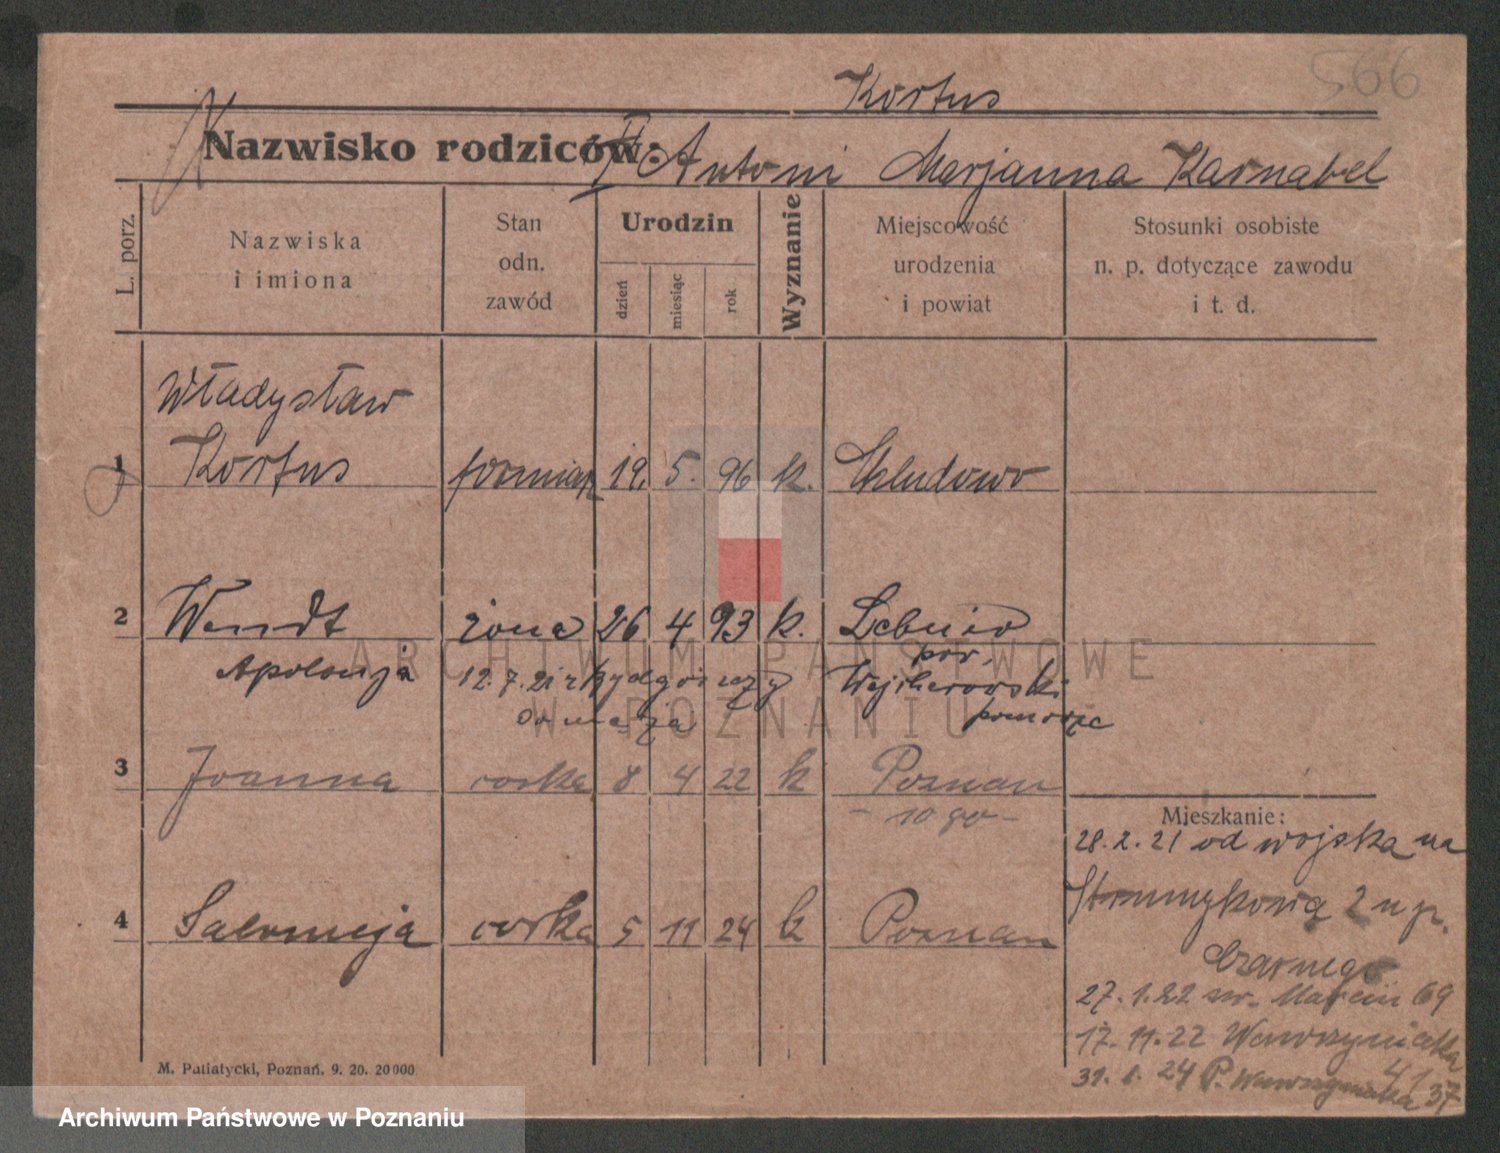 566
Kortus
Nazwisko rodziców: Antoni Marjanna Karnabel
L. porz.
Nazwiska
i imiona
Stan
odn.
zawód
Urodzin
dzień
miesiąc
rok
Wyznanie
Miejscowość
urodzenia
i powiat
Stosunki osobiste
n. p. dotyczące zawodu
i t. d.
Władysław
1 Kortus forniarz 19. 5. 96 k. Chludowo
2 Wendt żona 26 4 93 k.
Apolonja 12.7.21 z Bydgoszczy
pow.
Wejherowski
pomorze
3 Joanna corka 8 4 22 k Poznan
- 10 go -
4 Salomeja corka 5 11 24 k Poznan
Mieszkanie:
28.2.21 od wojska na
Strumykową 2 u p.
Czarnego
27.1.22 św. Marcin 69
17.11.22 Wawrzyniaka
41
31. 24 P. Wawrzyniaka 37
M. Putiatycki, Poznań. 9. 20. 20000
ARCHIWUM PAŃSTWOWE
W POZNANIU
Archiwum Państwowe w Poznaniu